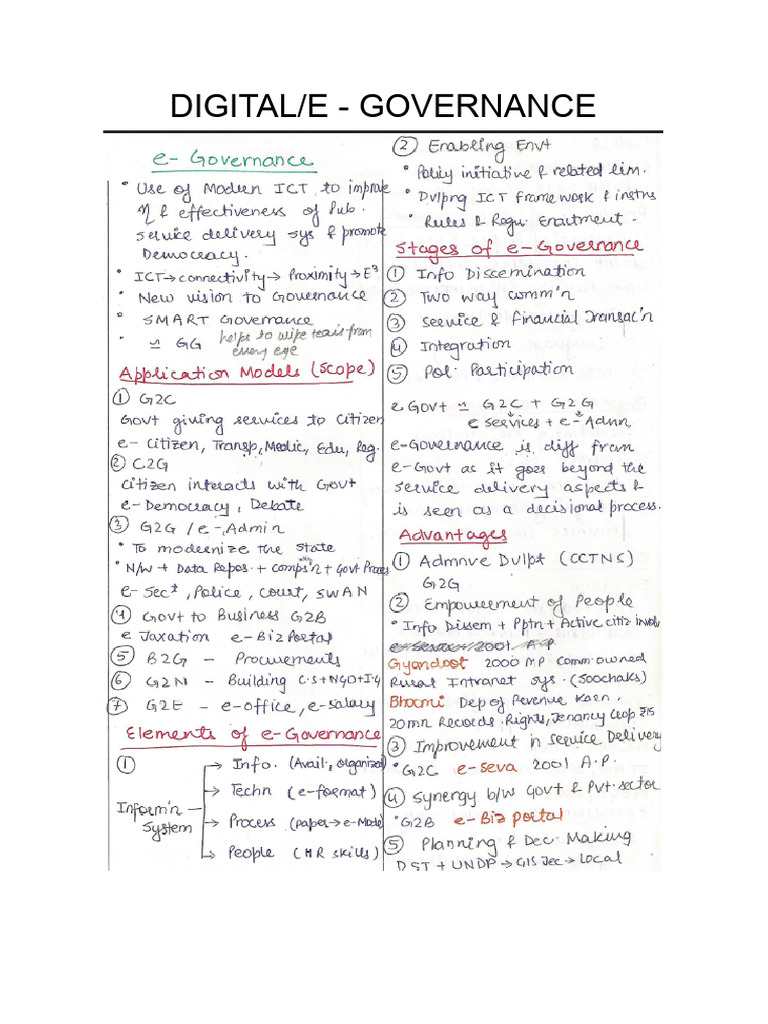 DIGITAL/E - GOVERNANCE
e- Governance
• Use of Modern ICT to improve
η & effectiveness of Pub.
service delivery sys & promote
Democracy.
• ICT→connectivity→ Proximity→E³
• New vision to Governance
• SMART Governance
• ≃ GG helps to wipe tears from
every eye
Application Models (scope)
① G2C
Govt giving services to citizen
e- citizen, Transp, Medic, Edu, Reg.
② C2G
citizen interacts with Govt
e-Democracy, Debate
③ G2G / e-Admin
• To modernize the state
• N/W + Data Repos. + Comps'n + Govt Process
e-Sect, Police, Court, SWAN
④ Govt to Business G2B
e Taxation e-Biz Portal
⑤ B2G - Procurements
⑥ G2N - Building C.S+NGO+I.G
⑦ G2E - e-office, e-salary
Elements of e-Governance
①
Inform'n System
→ Info. (Avail., organized)
→ Techn (e-format)
→ Process (paper→e-Mode)
→ People (HR skills)
② Enabling Envt
• Policy initiative & related
• Dvlpng ICT frame work & instns
• Rules & Regu. Enactment.
Stages of e-Governance
① Info Dissemination
② Two way comm'n
③ service & financial Transac'n
④ Integration
⑤ Pol. Participation
e Govt ≃ G2C + G2G
e services + e-Admn
e-Governance is diff from
e-Govt as it goes beyond the
service delivery aspects &
is seen as a decisional process.
Advantages
① Admnve Dvlpt (CCTNS)
G2G
② Empowerment of People
• Info Dissem + Pptn + Active citiz involv
2001 A.P.
Gyandoot 2000 M.P Comm. owned
Rural Intranet sys. (Soochaks)
Bhoomi Dep of Revenue Karn.
20 mn Records. Rights, Tenancy Crop
③ Improvement in Service Delivery
• G2C e-seva 2001 A.P.
④ Synergy b/w Govt & Pvt. sector
• G2B e-Biz Portal
⑤ Planning & Dec. Making
DST + UNDP → GIS Tec → Local